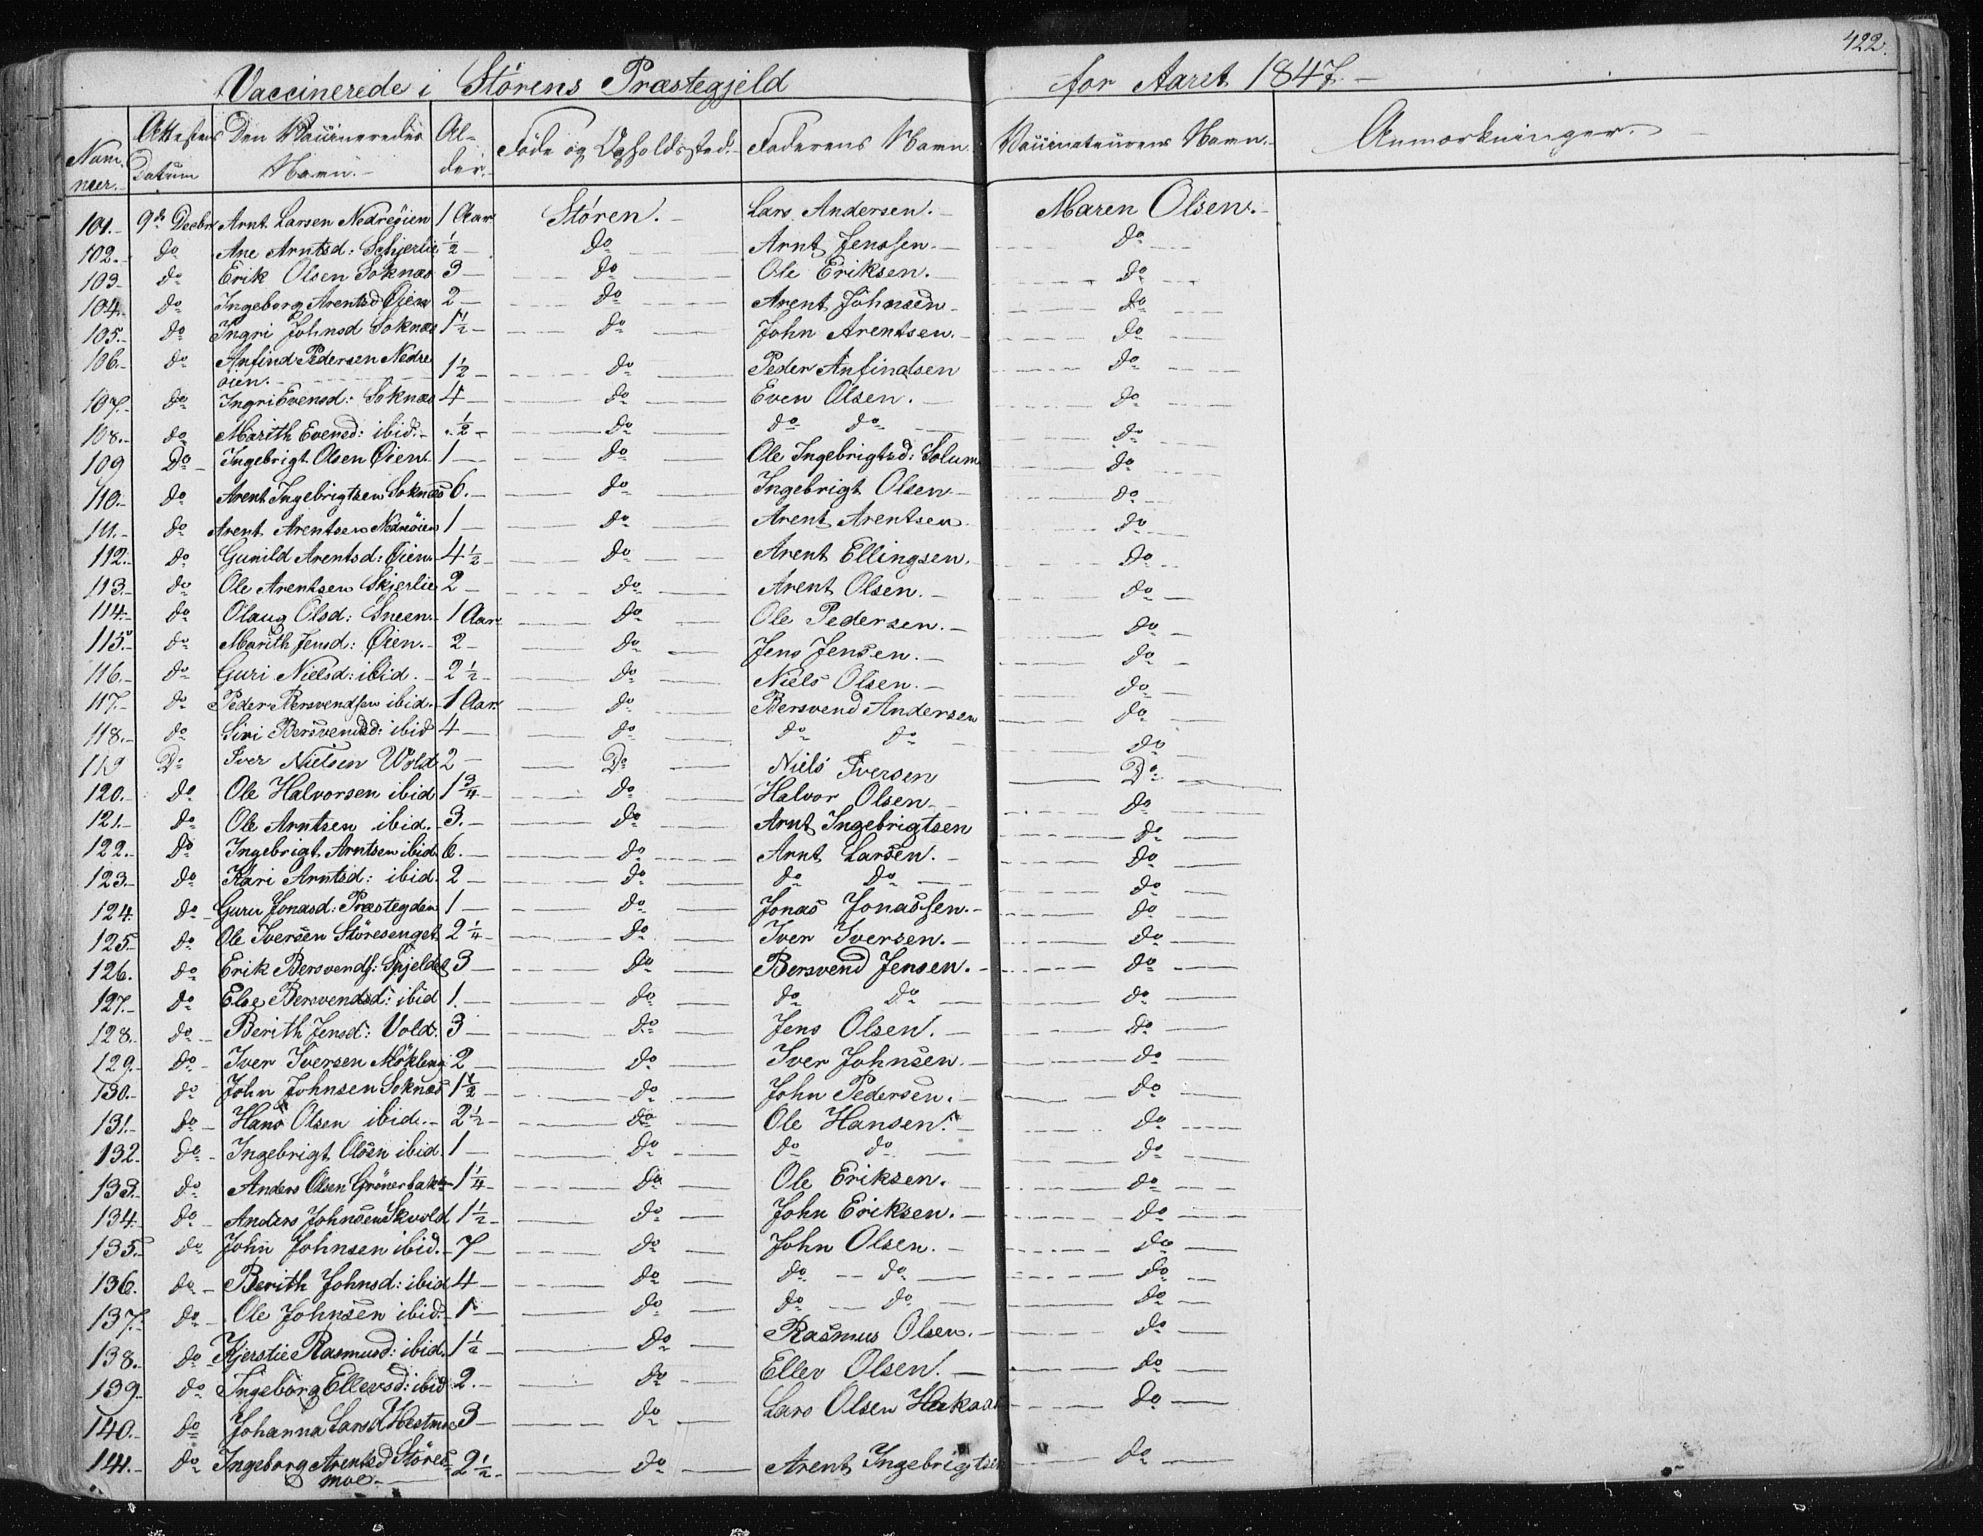 422.
Vaccinerede i Störens Præstegjeld for Aaret 1847.
Num- Attestens Den Vaccineredes Al- Föde og Opholdssted. Faderens Navn Vaccinateurens Navn. Anmærkninger.
mer. Datum Navn. der.
101. 9de Decbr Arnt Larsen Nedreöien 1 Aar Stören. Lars Andersen. Maren Olsen.
102. do Ane Arntsd: Schjerlie ½ do Arnt Jenssen. do
103 do Erik Olsen Soknæs 3 do Ole Eriksen. do
104. do Ingeborg Arentsd Øien 2 do Arent Johnsen do
105. do Ingri Johnsd Soknæs 1½ do John Arentsen. do
106. do Anfind Pedersen Nedre
öien. 1½ do Peder Anfindsen do
107. do Ingri Evensd: Soknæs 4 do Even Olsen. do
108. do Marith Evensd: ibid. ½ do do do do
109 Do Ingebrigt Olsen Øien 1 do Ole Ingebrigtsd: Solum do
110. do Arent Ingebrigtsen Soknæs 6. do Ingebrigt Olsen do
111. do Arent Arentsen Nedreöien 1 do Arent Arentsen do
112. do Gunild Arentsd: Øien 4½ do Arent Ellingsen. do
113. do Ole Arentsen Skjerlie 2 do Arent Olsen. do
114. do Olaug Olsd: Sneen 1 Aar do Ole Pedersen. do
115. do Marith Jensd: Øien. 2 do Jens Jensen. do
116. do Guri Nielsd: ibid. 2½ do Niels Olsen. do
117. do Peder Bersvendsen ibid. 1 Aar do Bersvend Andersen do
118. do Siri Bersvendsd: ibid 4 do do do do
119 Do Iver Nielsen Wold 2 Do Niels Iversen Do
120. do Ole Halvorsen ibid 1¾ do Halvor Olsen do
121. do Ole Arntsen ibid. 3. do Arnt Ingebrigtsen do
122. do Ingebrigt Arntsen ibid. 6. do Arnt Larsen. do
123. do Kari Arntsd: ibid. 2 do do do do
124. do Guru Jonasd: Præstegden 1 do Jonas Jonassen. do
125. do Ole Iversen Störesenget 2¼ do Iver Iversen. do
126. do Erik Bersvends: Spjeldet 3 do Bersvend Jensen. do
127. do Else Bersvendsd: ibid 1. do do do do
128. do Berith Jensd: Vold. 3 do Jens Olsen. do
129. do Iver Iversen 2 do Iver Johnsen. do
130. do John Johnsen Soknæs 1½ do John Pedersen. do
131. do Hans Olsen ibid. 2½ do Ole Hansen. do
132. do Ingebrigt Olsen ibid 1 do do do do
133. do Anders Olsen Grönerbakn 1¼ do Ole Eriksen. do
134. do Anders Johnsen Skvold 1½ do John Eriksen. do
135. do John Johnsen ibid. 7 do John Olsen. do
136. do Berith Johnsd: ibid 4 do do do do
137. do Ole Johnsen ibid. 1 do do do do
138. do Kjerstie Rasmusd: ibid. 1½ do Rasmus Olsen. do
139. do Ingeborg Ellevsd: ibid 2. do Ellev Olsen. do
140. do Johanna Larsd Hestmoe 3 do Lars Olsen do
141. do Ingeborg Arentsd Störes
moe. 2½ do Arent Ingebrigtsen do